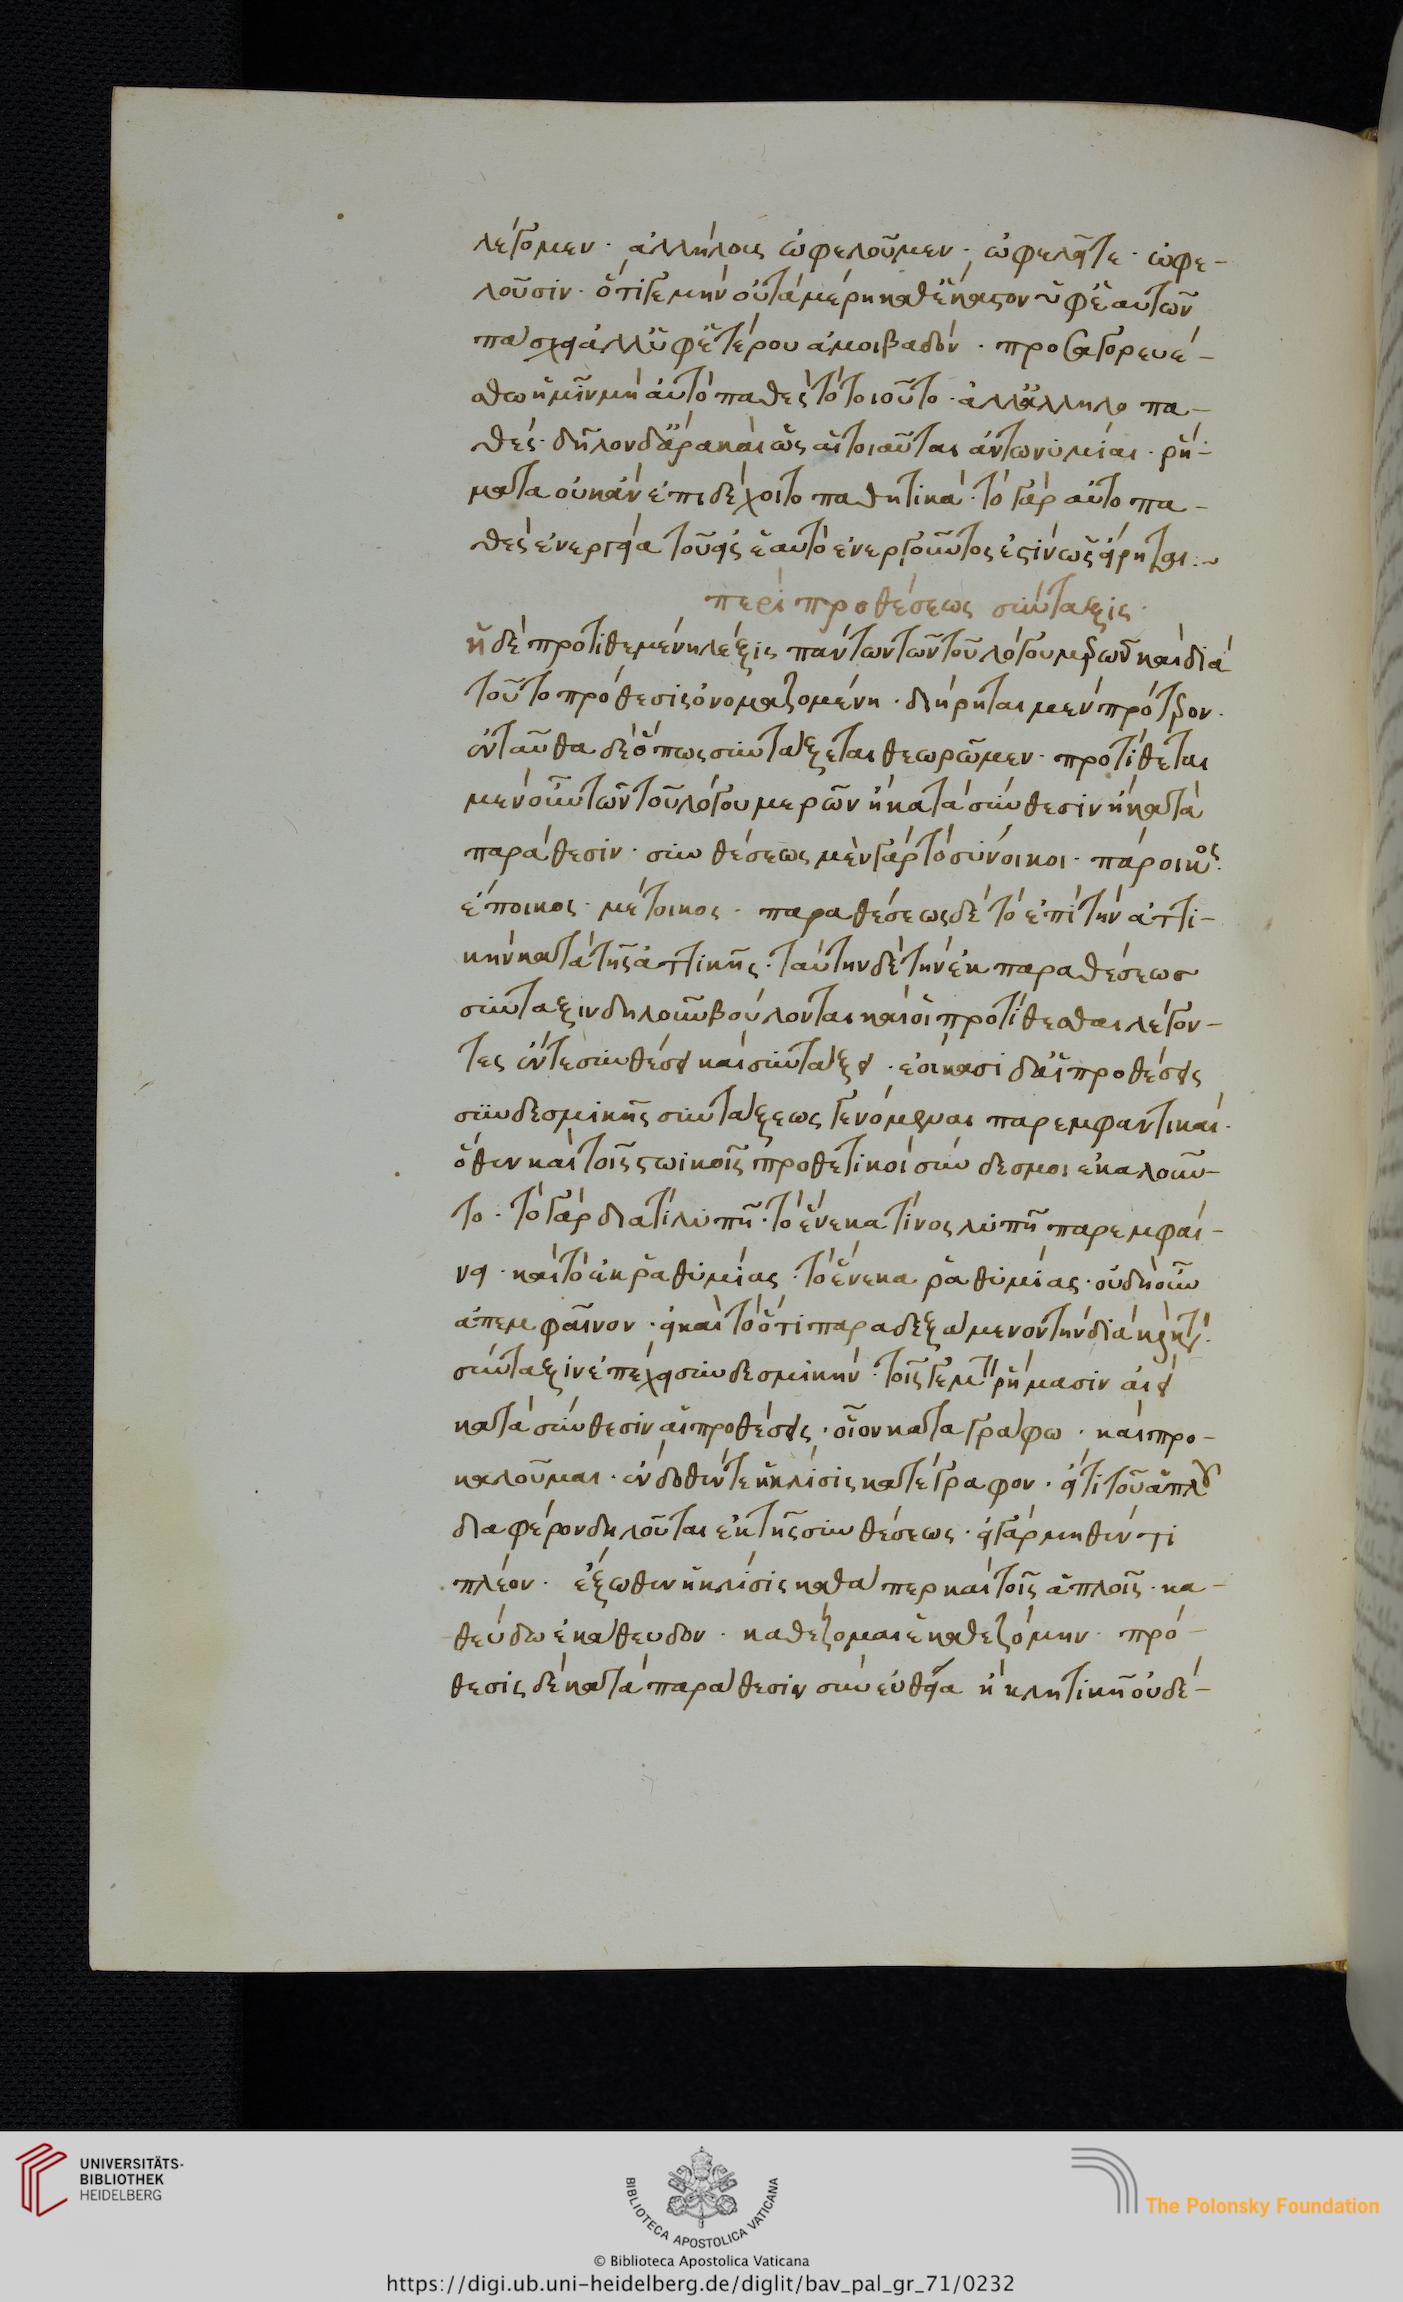 λέγομεν · ἀλλήλους ὠφελοῦμεν · ὠφελεῖτε · ὠφε-
λοῦσιν · ὅτι γε μὴν οὐ τὰ μέρη καθ' ἕκαστον ὑφ' ἑαυτῶν
πάσχει ἀλλ' ὑφ' ἑτέρου ἀμοιβαδόν · προσαγορευέ-
σθω ἡμῖν μὴ αὐτοπαθὲς τὸ τοιοῦτο · ἀλλ' ἀλληλοπα-
θές · δῆλον δ' ἄρα καὶ ὡς αἱ τοιαῦται ἀντωνυμίαι · ῥή-
ματα οὐκ ἂν ἐπιδέχοιτο παθητικά · τὸ γὰρ αὐτοπα-
θὲς ἐνεργεία τοῦ εἰς ἑαυτὸ ἐνεργοῦντος ἐστὶν ὡς εἴρηται :~
περὶ προθέσεως σύνταξις ·
ἡ δὲ προτιθεμένη λέξις πάντων τῶν τοῦ λόγου μερῶν καὶ διὰ
τοῦτο πρόθεσις ὀνομαζομένη · διήρηται μὲν πρότερον ·
ἐνταῦθα δὲ ὅπως συντάξεται θεωρῶμεν · προτίθεται
μὲν οὖν τῶν τοῦ λόγου μερῶν ἢ κατὰ σύνθεσιν ἢ κατὰ
παράθεσιν · συνθέσεως μὲν γὰρ τὸ σύνοικοι · πάροικος ·
ἔποικος · μέτοικος · παραθέσεως δὲ τὸ ἐπὶ τὴν ἀττι-
κὴν κατὰ τῆς ἀττικῆς · ταύτην δὲ τὴν ἐκ παραθέσεως
σύνταξιν δηλοῦν βούλονται καὶ οἱ προτίθεσθαι λέγον-
τες ἔν τε συνθέσει καὶ συντάξει · ἐοίκασι δ' αἱ προθέσεις
συνδεσμικῆς συντάξεως γενόμεναι παρεμφαντικαί ·
ὅθεν καὶ τοῖς στωικοῖς προθετικοὶ σύνδεσμοι ἐκαλοῦν-
το · τὸ γὰρ διατί λυπῇ · τὸ ἕνεκα τίνος λυπῇ παρεμφαί-
νει · καὶ τὸ ἐκ ῥαθυμίας · τὸ ἕνεκα ῥαθυμίας · οὐδὴ οὖν
ἀπεμφαῖνον · εἰ καὶ τὸ ὅτι παραδεξάμενον τὴν διὰ
σύνταξιν ἐπέχει συνδεσμικήν · τοῖς γε μὴν ῥήμασιν ἀεὶ
κατὰ σύνθεσιν αἱ προθέσεις · οἷον καταγράφω · καὶ προ-
καλοῦμαι · ἔνδοθέν τε ἡ κλίσις κατέγραφον · εἴ τι τοῦ ἁπλοῦ
διαφέρον δηλοῦται ἐκ τῆς συνθέσεως · εἰ γὰρ μηθέν τι
πλέον · ἔξωθεν ἡ κλίσις καθάπερ καὶ τοῖς ἁπλοῖς · κα-
θεύδω ἐκάθευδον · καθέζομαι ἐκαθεζόμην · πρό-
θεσις δὲ κατὰ παράθεσιν σὺν εὐθεία ἢ κλητικῇ οὐδέ-
UNIVERSITÄTS-
BIBLIOTHEK
HEIDELBERG
BIBLIOTECA APOSTOLICA VATICANA
The Polonsky Foundation
© Biblioteca Apostolica Vaticana
https://digi.ub.uni-heidelberg.de/diglit/bav_pal_gr_71/0232